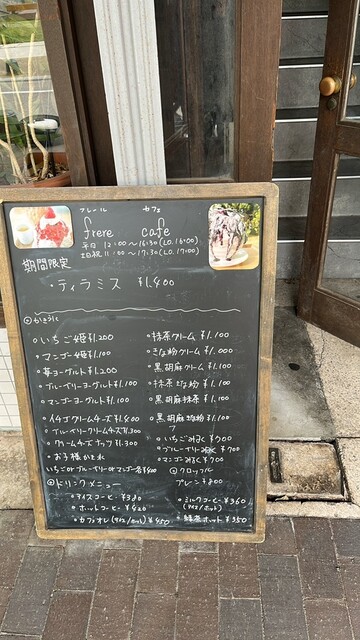 フレール カフェ
frere cafe
平日 12:00〜16:30(L.O.16:00)
土日祝 11:00〜17:30(L.O.17:00)
期間限定
・ティラミス ¥1.400
かき氷
・いちご姫 ¥1.200
・マンゴー姫 ¥1.100
・苺ヨーグルト ¥1.200
・ブルーベリーヨーグルト ¥1.100
・マンゴーヨーグルト ¥1.100
・イチゴクリームチーズ ¥1.400
・ブルーベリークリームチーズ ¥1.300
・クリームチーズナッツ ¥1.300
・お子様かき氷
いちごorブルーベリーorマンゴー 各¥400
・抹茶クリーム ¥1.100
・きな粉クリーム ¥1.000
・黒胡麻クリーム ¥1.100
・抹茶きな粉 ¥1.100
・黒胡麻抹茶 ¥1.100
・黒胡麻きな粉 ¥1.100
・いちごみるく ¥700
・ブルーベリーみるく ¥700
・マンゴーみるく ¥700
クロッフル
プレーン ¥800
ドリンクメニュー
・アイスコーヒー ¥380
・ホットコーヒー ¥420
・カフェオレ(アイス/ホット) ¥450
・ミルクコーヒー ¥360
(アイス/ホット)
・緑茶ポット ¥350